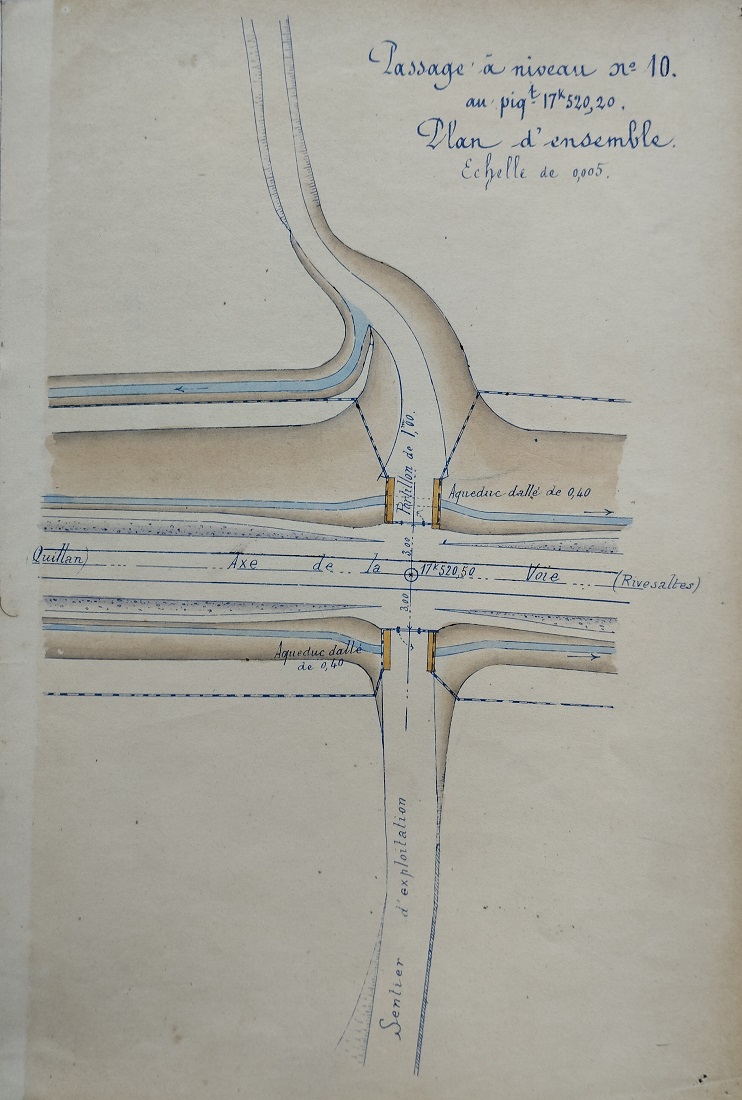 Passage à niveau nº 10.
au piqt 17k520,20.
Plan d'ensemble.
Echelle de 0,005.
Portillon de 1,m00.
Aqueduc dallé de 0,40
3,00
Quillan)
Axe de la Voie
17k520,50
(Rivesaltes)
3,00
Aqueduc dallé
de 0,40
Sentier d'exploitation